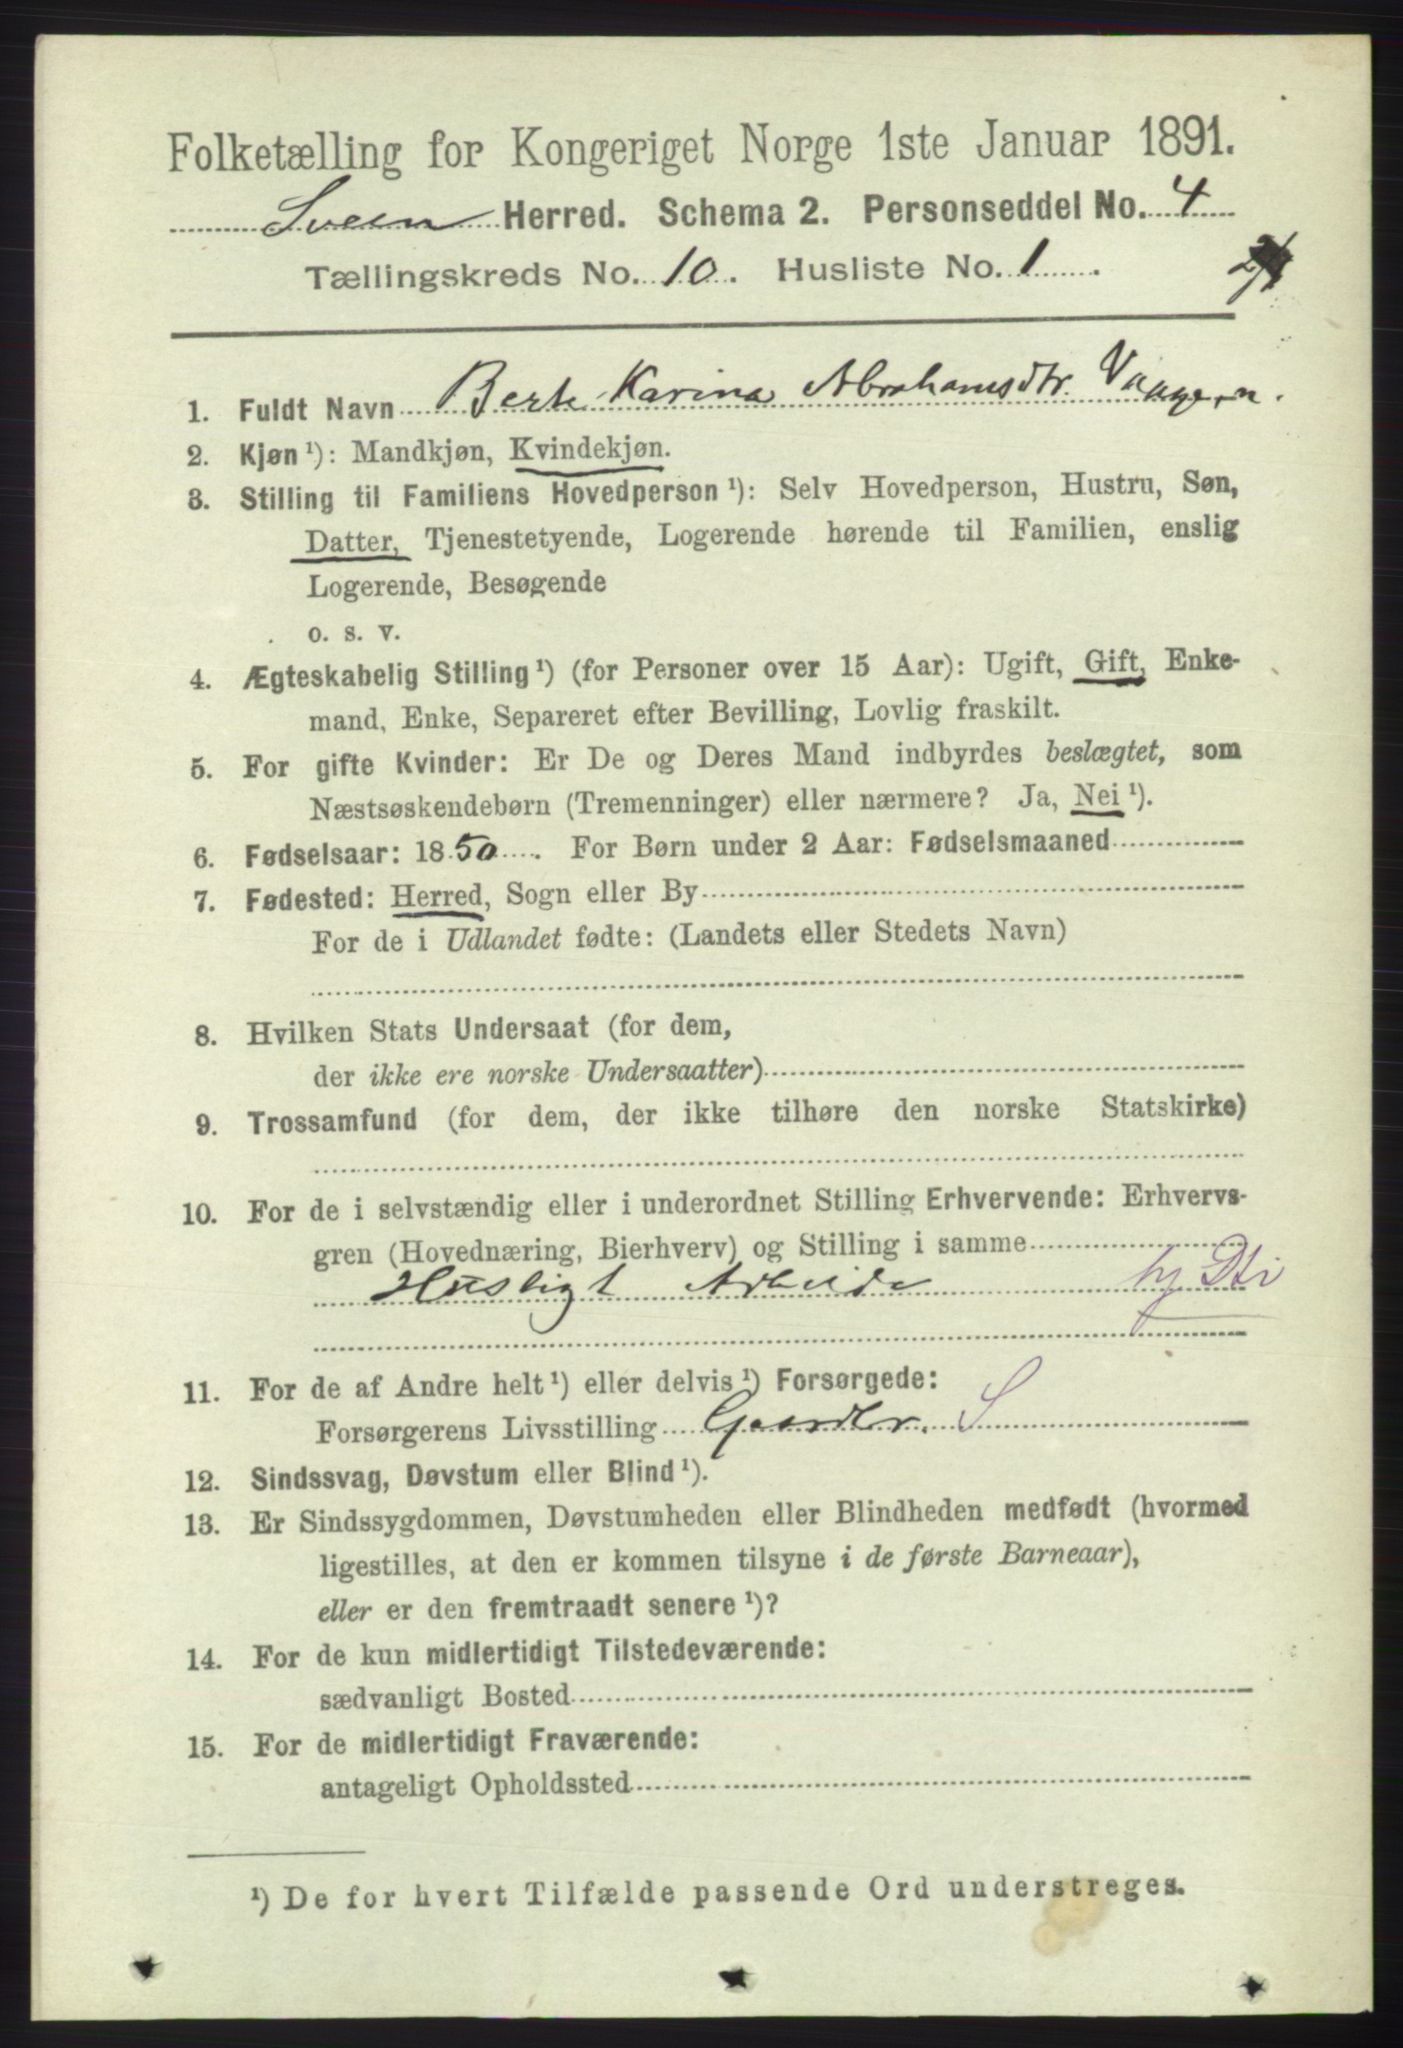 Folketælling for Kongeriget Norge 1ste Januar 1891.
Sveen Herred. Schema 2. Personseddel No. 4
Tællingskreds No. 10. Husliste No. 1.
1. Fuldt Navn Berte Karina Abrahamsdtr. Vaagen.
2. Kjøn ¹): Mandkjøn, Kvindekjøn.
3. Stilling til Familiens Hovedperson ¹): Selv Hovedperson, Hustru, Søn,
Datter, Tjenestetyende, Logerende hørende til Familien, enslig
Logerende, Besøgende
o. s. v.
4. Ægteskabelig Stilling ¹) (for Personer over 15 Aar): Ugift, Gift, Enke-
mand, Enke, Separeret efter Bevilling, Lovlig fraskilt.
5. For gifte Kvinder: Er De og Deres Mand indbyrdes beslægtet, som
Næstsøskendebørn (Tremenninger) eller nærmere? Ja, Nei ¹).
6. Fødselsaar: 1850. For Børn under 2 Aar: Fødselsmaaned
7. Fødested: Herred, Sogn eller By
For de i Udlandet fødte: (Landets eller Stedets Navn)
8. Hvilken Stats Undersaat (for dem,
der ikke ere norske Undersaatter)
9. Trossamfund (for dem, der ikke tilhøre den norske Statskirke)
10. For de i selvstændig eller i underordnet Stilling Erhvervende: Erhvervs-
gren (Hovednæring, Bierhverv) og Stilling i samme
Husligt Arbeide
11. For de af Andre helt ¹) eller delvis ¹) Forsørgede:
Forsørgerens Livsstilling Gaardbr. S
12. Sindssvag, Døvstum eller Blind ¹).
13. Er Sindssygdommen, Døvstumheden eller Blindheden medfødt (hvormed
ligestilles, at den er kommen tilsyne i de første Barneaar),
eller er den fremtraadt senere ¹)?
14. For de kun midlertidigt Tilstedeværende:
sædvanligt Bosted
15. For de midlertidigt Fraværende:
antageligt Opholdssted
¹) De for hvert Tilfælde passende Ord understreges.